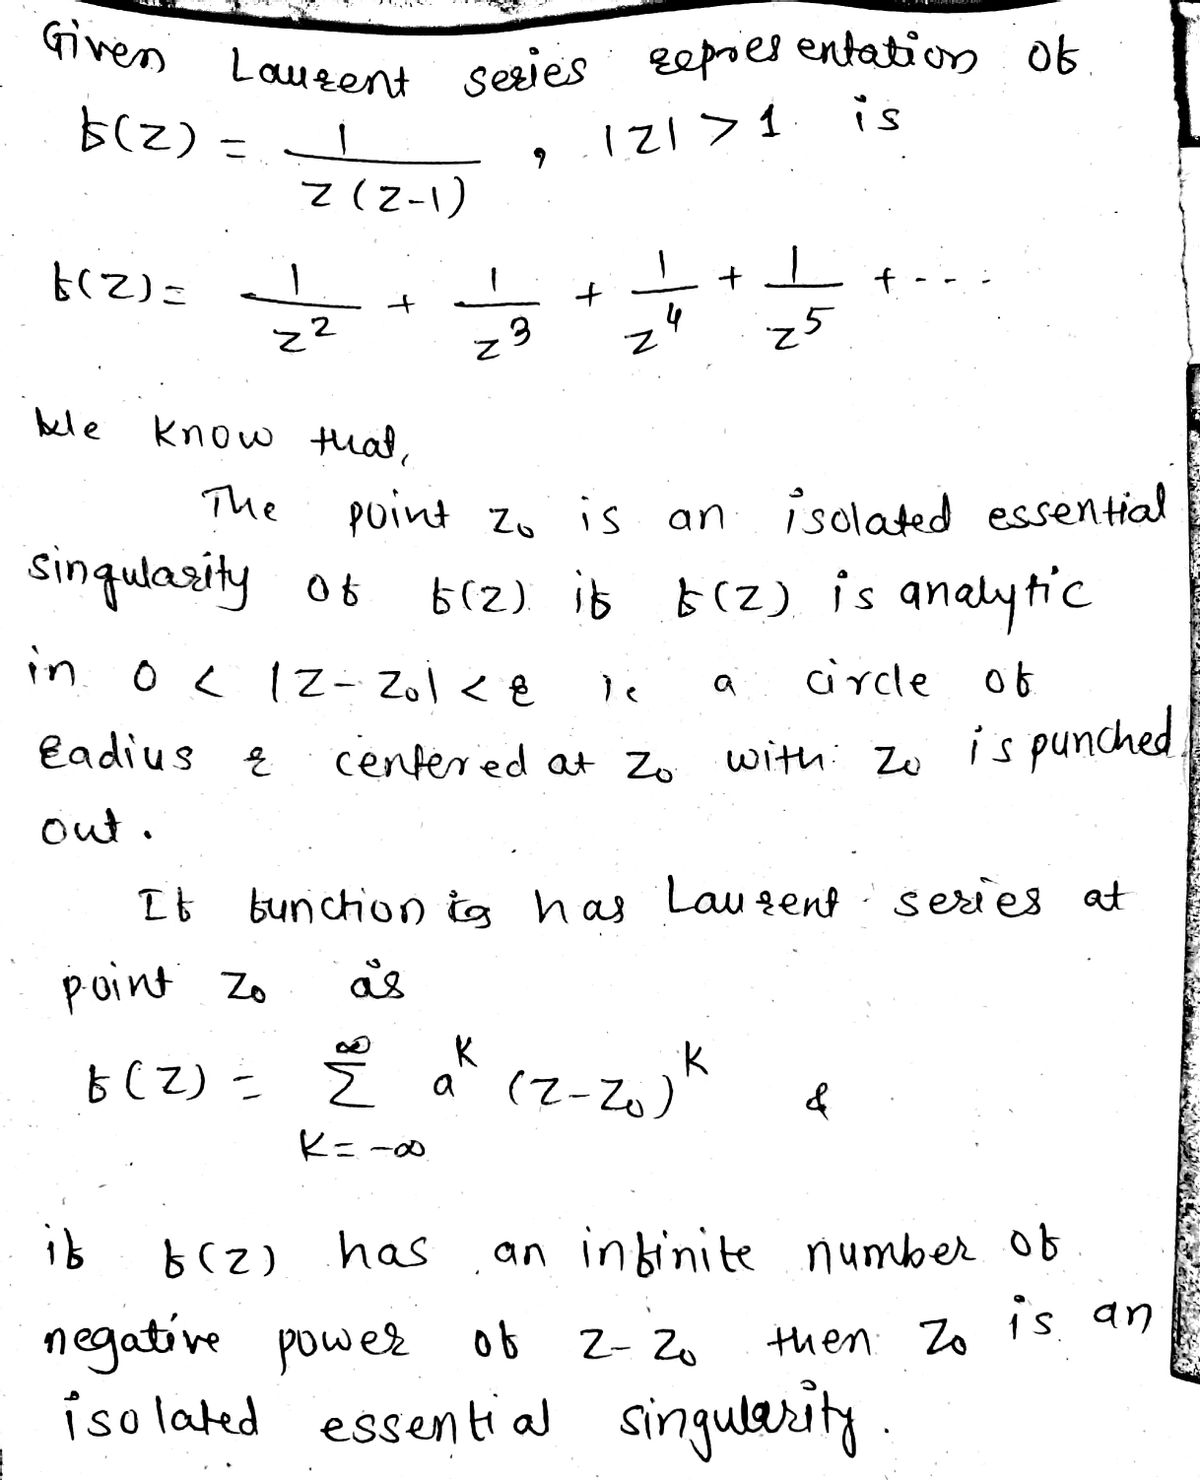 Given Laurent series representation of
f(z) = 1 / z(z-1) , |z| > 1 is
f(z) = 1/z² + 1/z³ + 1/z⁴ + 1/z⁵ + - - -
We know that,
The point z₀ is an isolated essential
singularity of f(z) if f(z) is analytic
in 0 < |z - z₀| < ε ie a circle of
radius ε centered at z₀ with z₀ is punched
out.
If function is has Laurent series at
point z₀ as
f(z) = ∞ Σ k = -∞ aᵏ (z - z₀)ᵏ &
if f(z) has an infinite number of
negative power of z - z₀ then z₀ is an
isolated essential singularity.